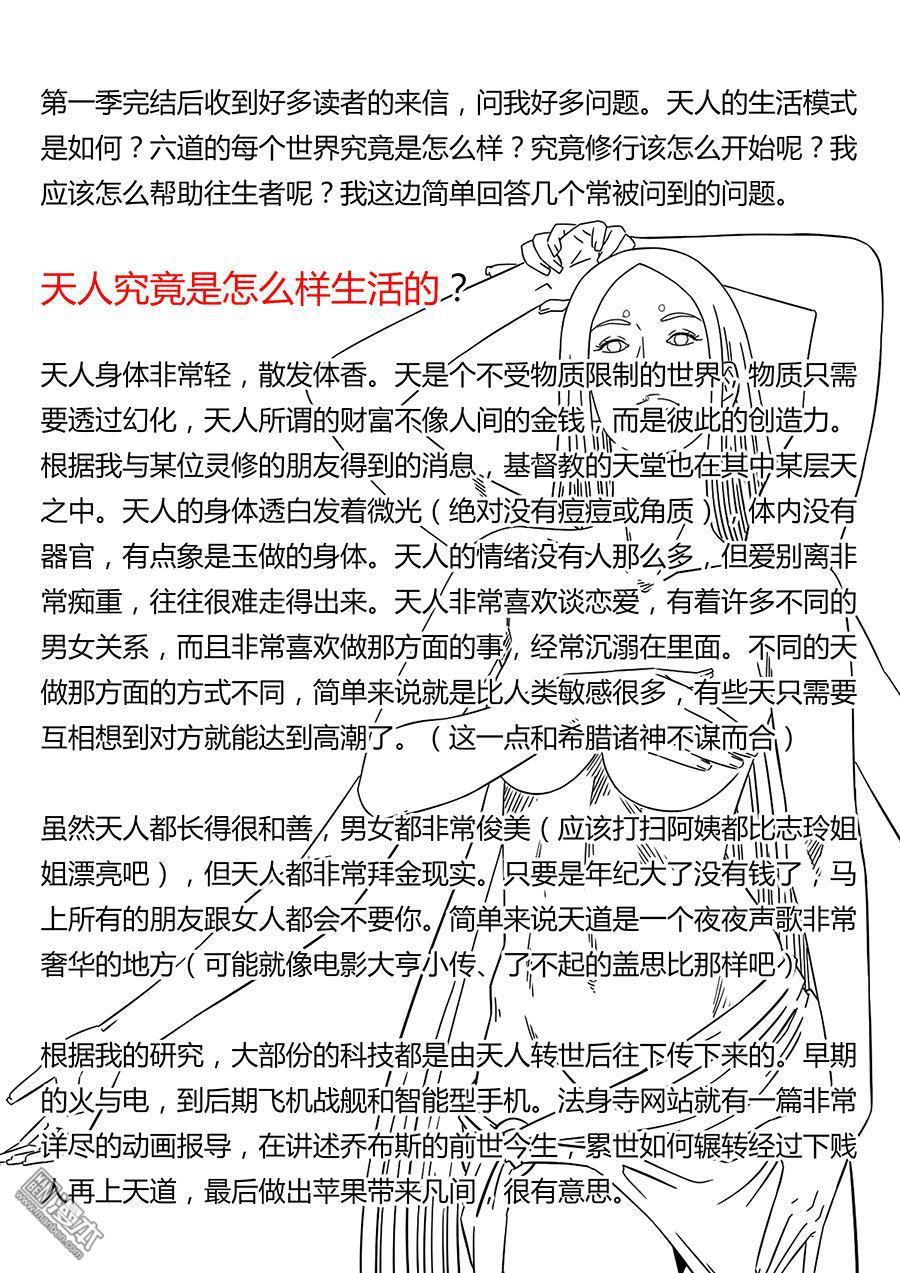 第一季完结后收到好多读者的来信，问我好多问题。天人的生活模式
是如何？六道的每个世界究竟是怎么样？究竟修行该怎么开始呢？我
应该怎么帮助往生者呢？我这边简单回答几个常被问到的问题。
天人究竟是怎么样生活的？
天人身体非常轻，散发体香。天是个不受物质限制的世界。物质只需
要透过幻化，天人所谓的财富不像人间的金钱，而是彼此的创造力。
根据我与某位灵修的朋友得到的消息，基督教的天堂也在其中某层天
之中。天人的身体透白发着微光（绝对没有痘痘或角质），体内没有
器官，有点象是玉做的身体。天人的情绪没有人那么多，但爱别离非
常痴重，往往很难走得出来。天人非常喜欢谈恋爱，有着许多不同的
男女关系，而且非常喜欢做那方面的事，经常沉溺在里面。不同的天
做那方面的方式不同，简单来说就是比人类敏感很多，有些天只需要
互相想到对方就能达到高潮了。（这一点和希腊诸神不谋而合）
虽然天人都长得很和善，男女都非常俊美（应该打扫阿姨都比志玲姐
姐漂亮吧），但天人都非常拜金现实。只要是年纪大了没有钱了，马
上所有的朋友跟女人都会不要你。简单来说天道是一个夜夜声歌非常
奢华的地方（可能就像电影大亨小传、了不起的盖思比那样吧）
根据我的研究，大部份的科技都是由天人转世后往下传下来的。早期
的火与电，到后期飞机战舰和智能型手机。法身寺网站就有一篇非常
详尽的动画报导，在讲述乔布斯的前世今生，累世如何辗转经过下贱
人再上天道，最后做出苹果带来凡间，很有意思。